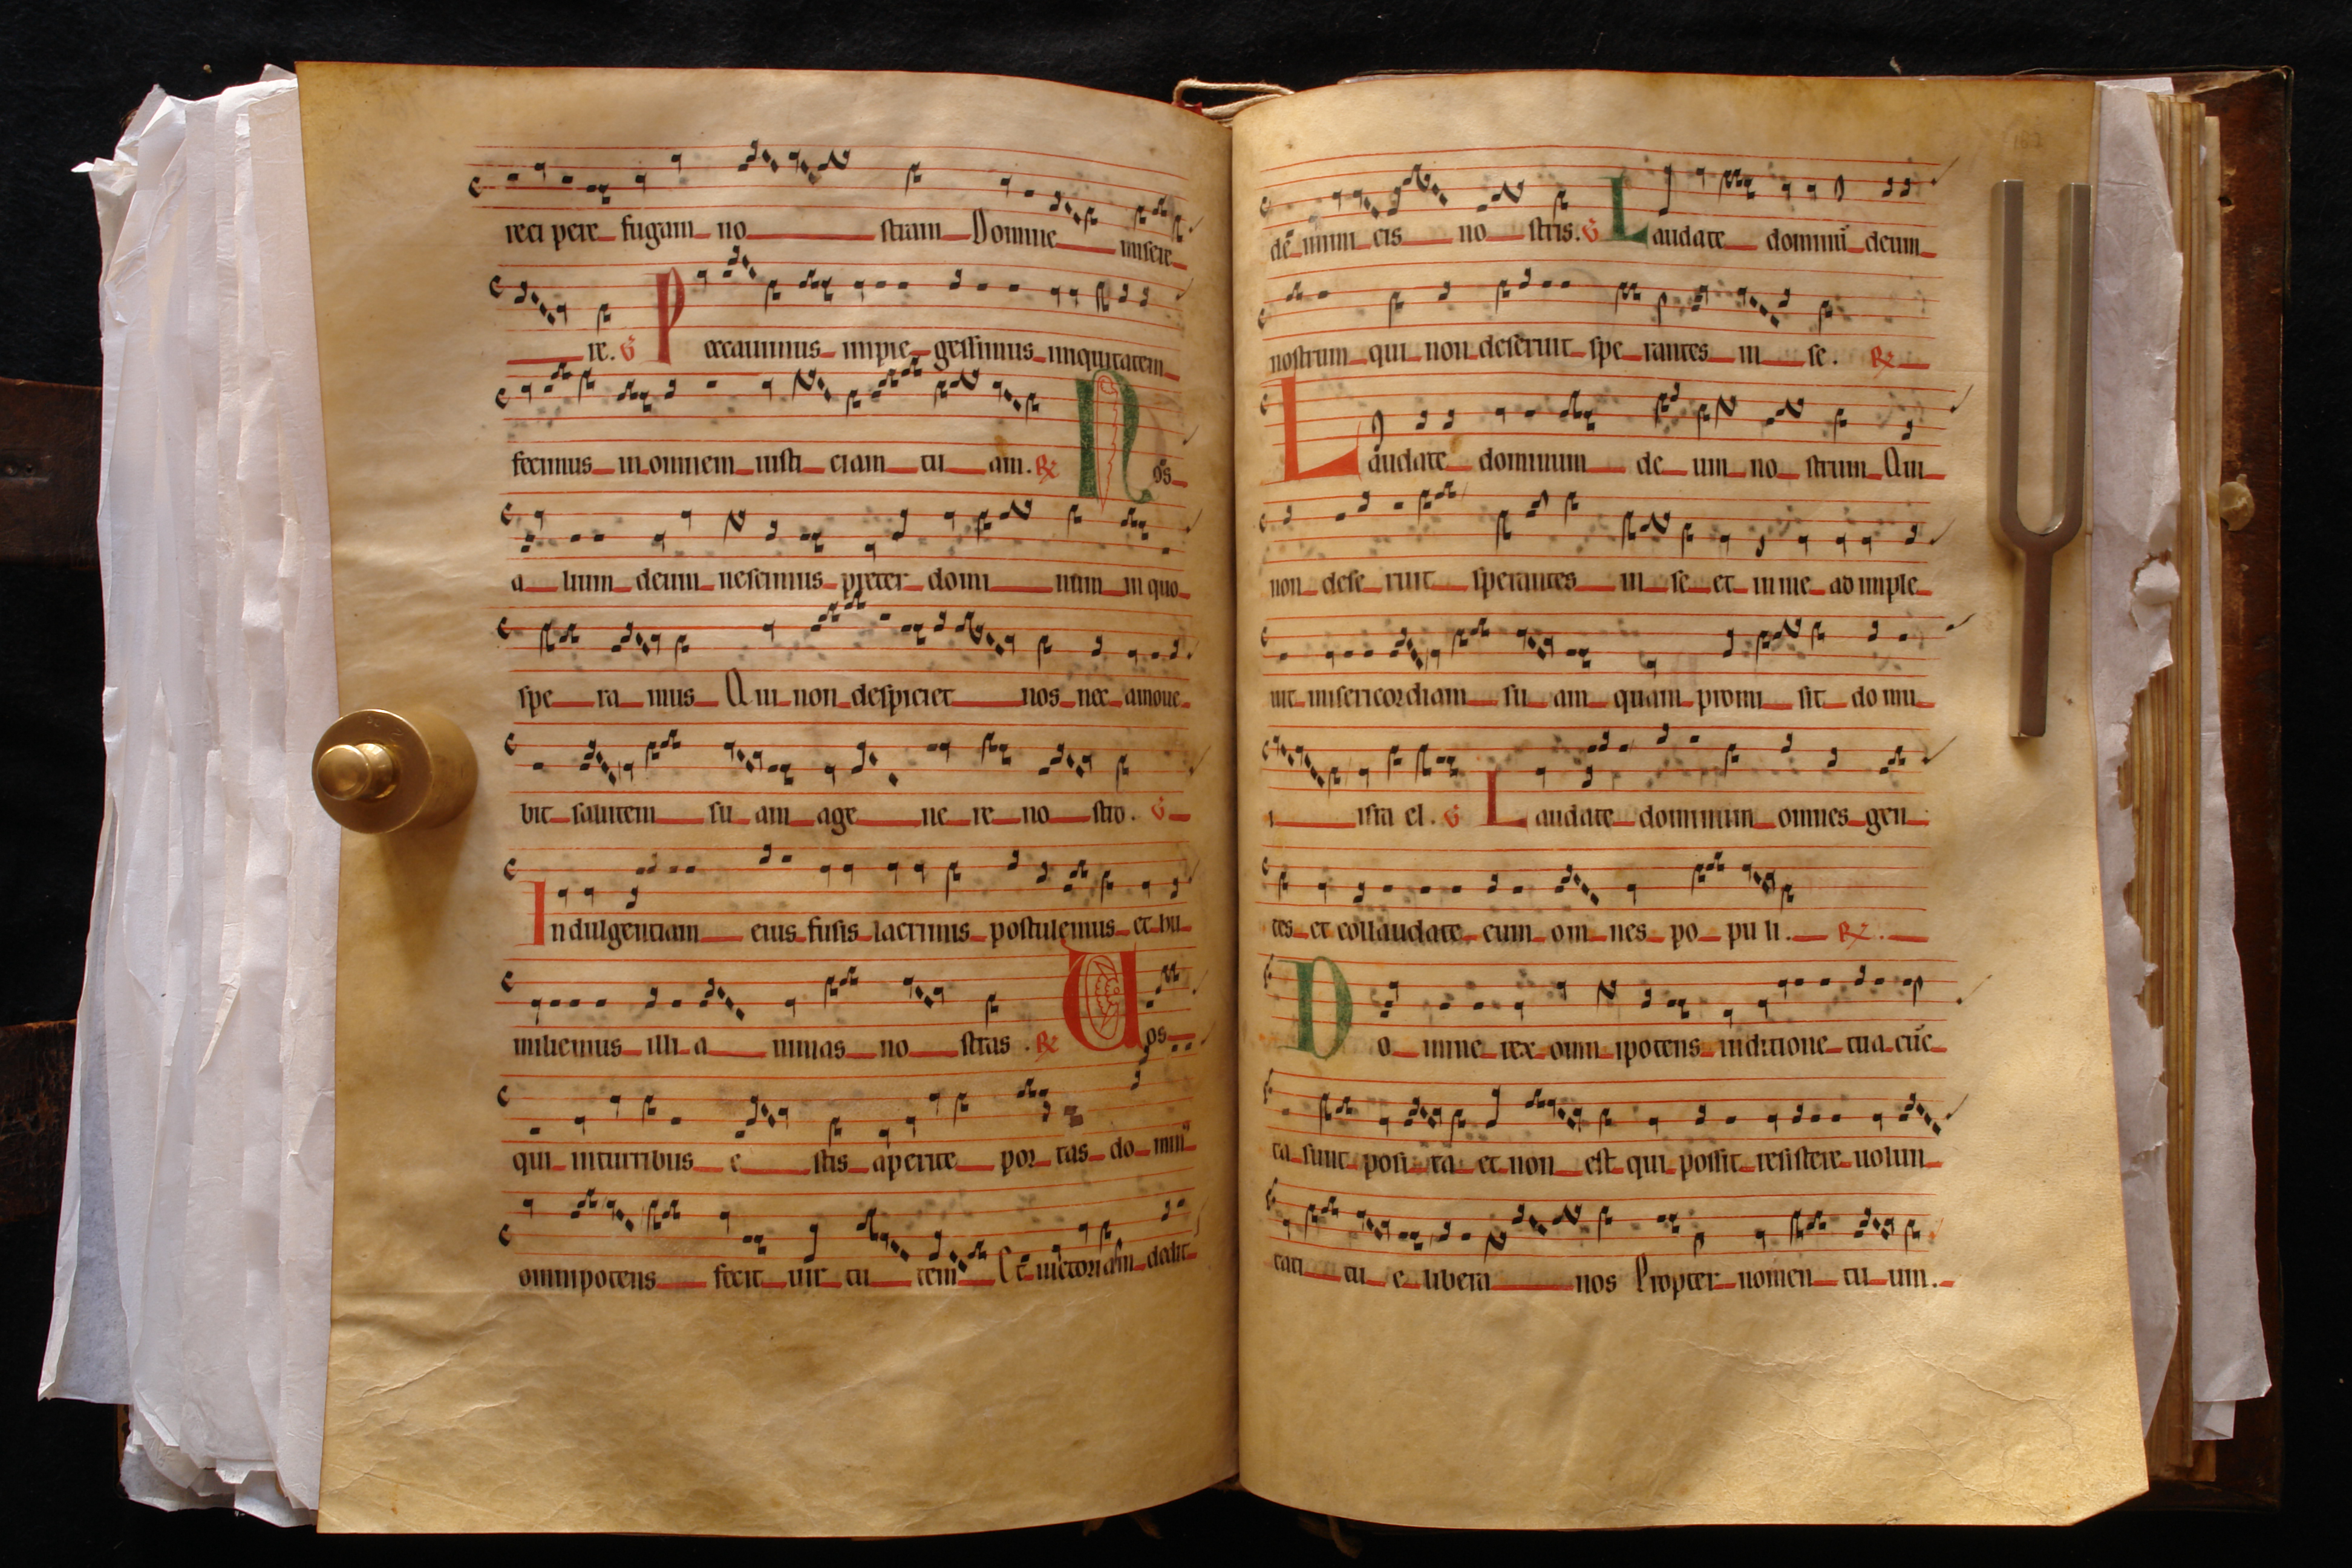 reci pere fugam no stram Domine misere
re. V Peccauimus impie gessimus iniquitatem
fecimus in omnem iusti ciam tu am. R Nos
a lium deum nescimus preter domi num in quo
spe ra mus Qui non despiciet nos nec amoue
bit salutem su am a ge ne re no stro. V
Indulgentiam eius fusis lacrimis postulemus et hu
miliemus illi a nimas no stras. R Uos
qui in turribus e stis aperite por tas do minꝰ
omnipotens fecit uir tu tem Et uictoriam dedit
de inim cis no stris. V Laudate dominū deum
nostrum qui non deseruit spe rantes in se. R
Laudate dominum de um no strum Qui
non dese ruit sperantes in se et in me ad imple
uit misericordiam su am quam promi sit do mu
i isra el. V Laudate dominum omnes gen
tes et collaudate eum om nes po pu li. R
Do mine rex omn ipotens in ditione tua cūc
ta sunt posi ta et non est qui possit resistere uolun
tati tu e libera nos Propter nomen tu um.